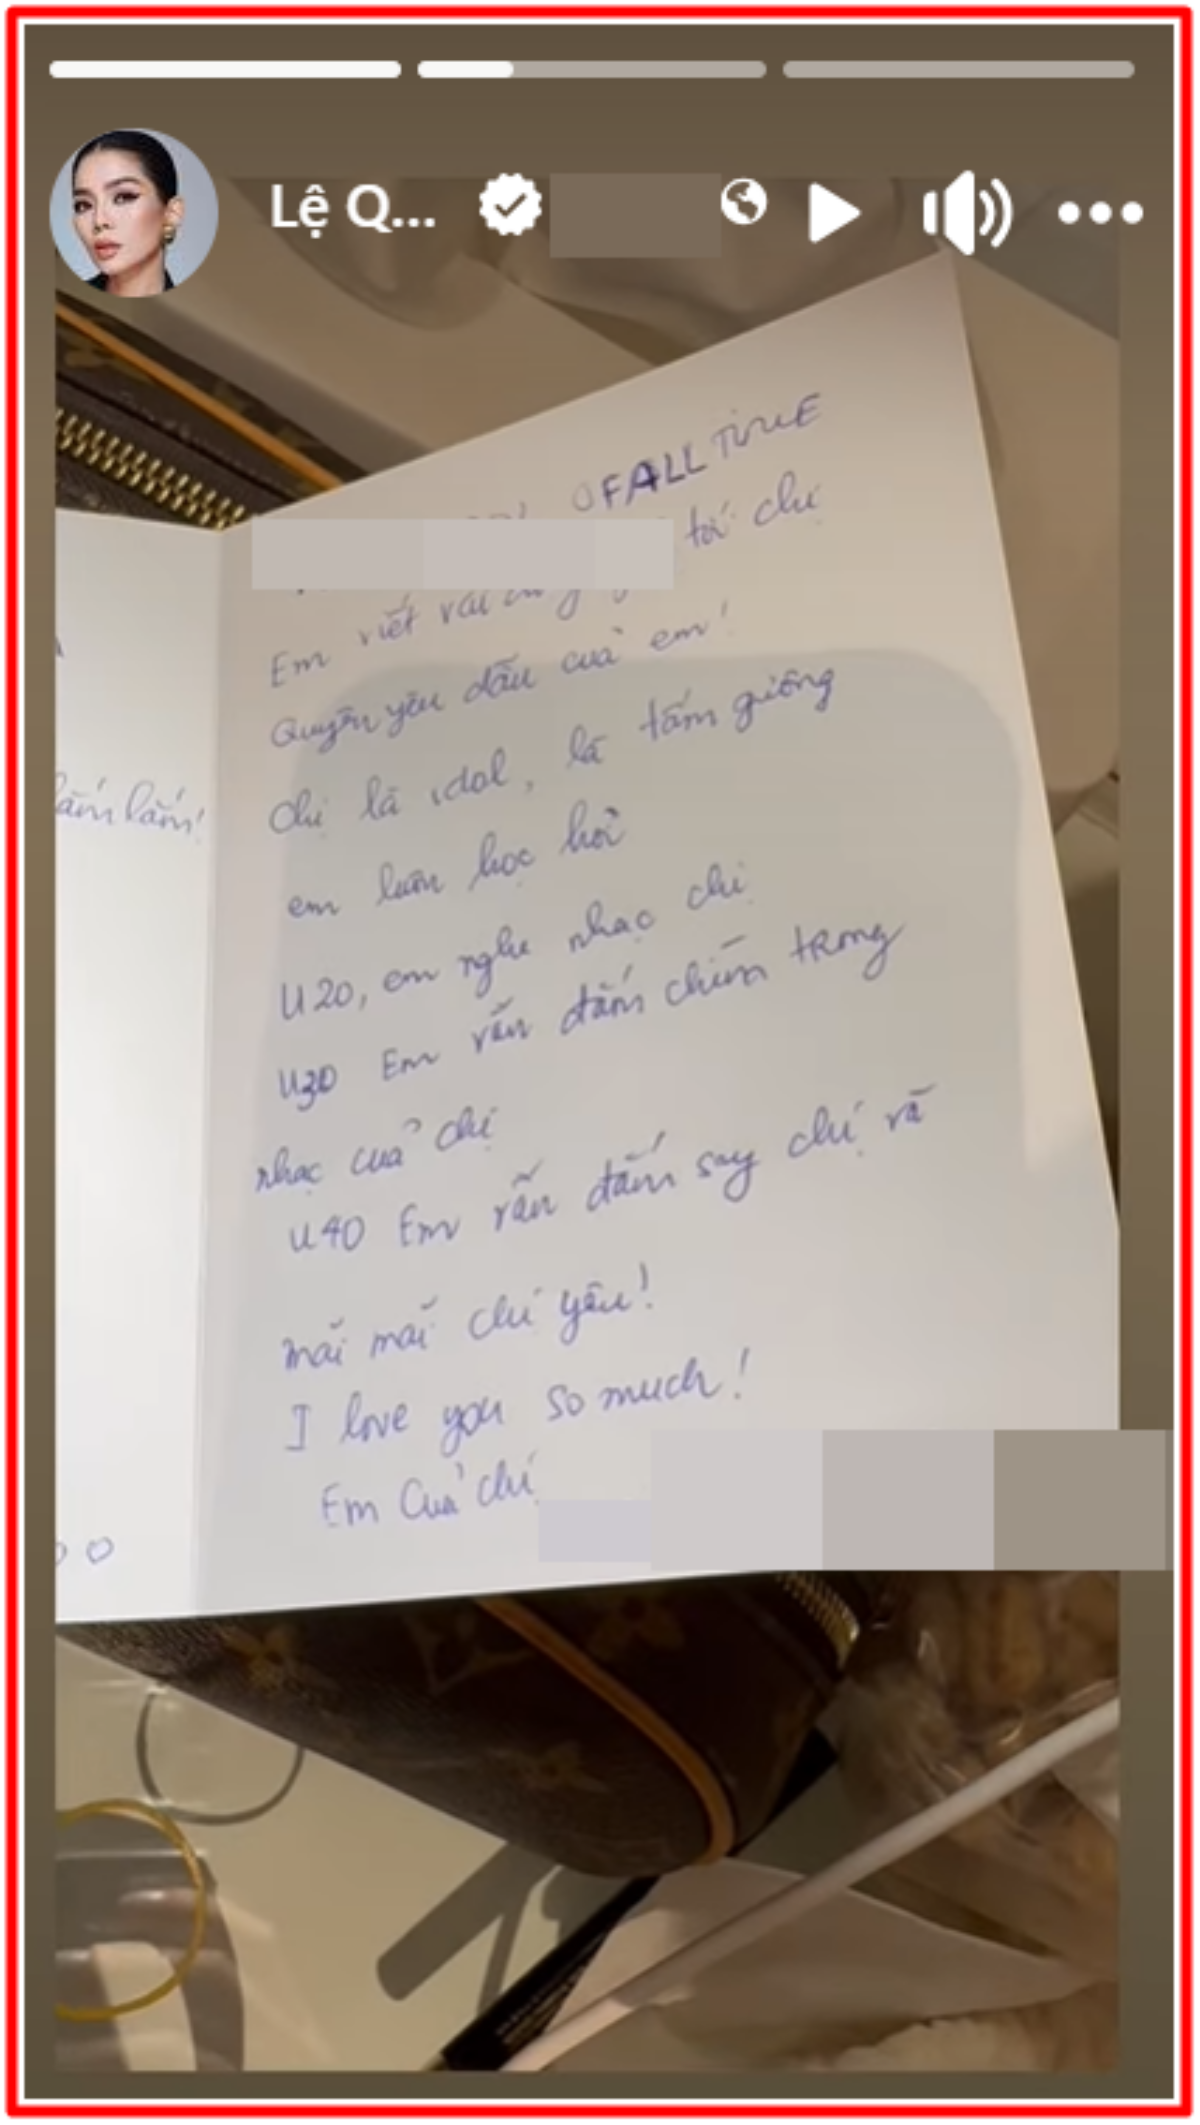 Lệ Q...
OF ALL TIME
tới chị
Em viết vài
Quyên yêu dấu của em!
Chị là idol, là tấm gương
em luôn học hỏi
U20, em nghe nhạc chị
U30 Em vẫn đắm chìm trong
nhạc của chị
U40 Em vẫn đắm say chị và
mãi mãi chị yêu!
I love you so much!
Em Của chị
lắm lắm!